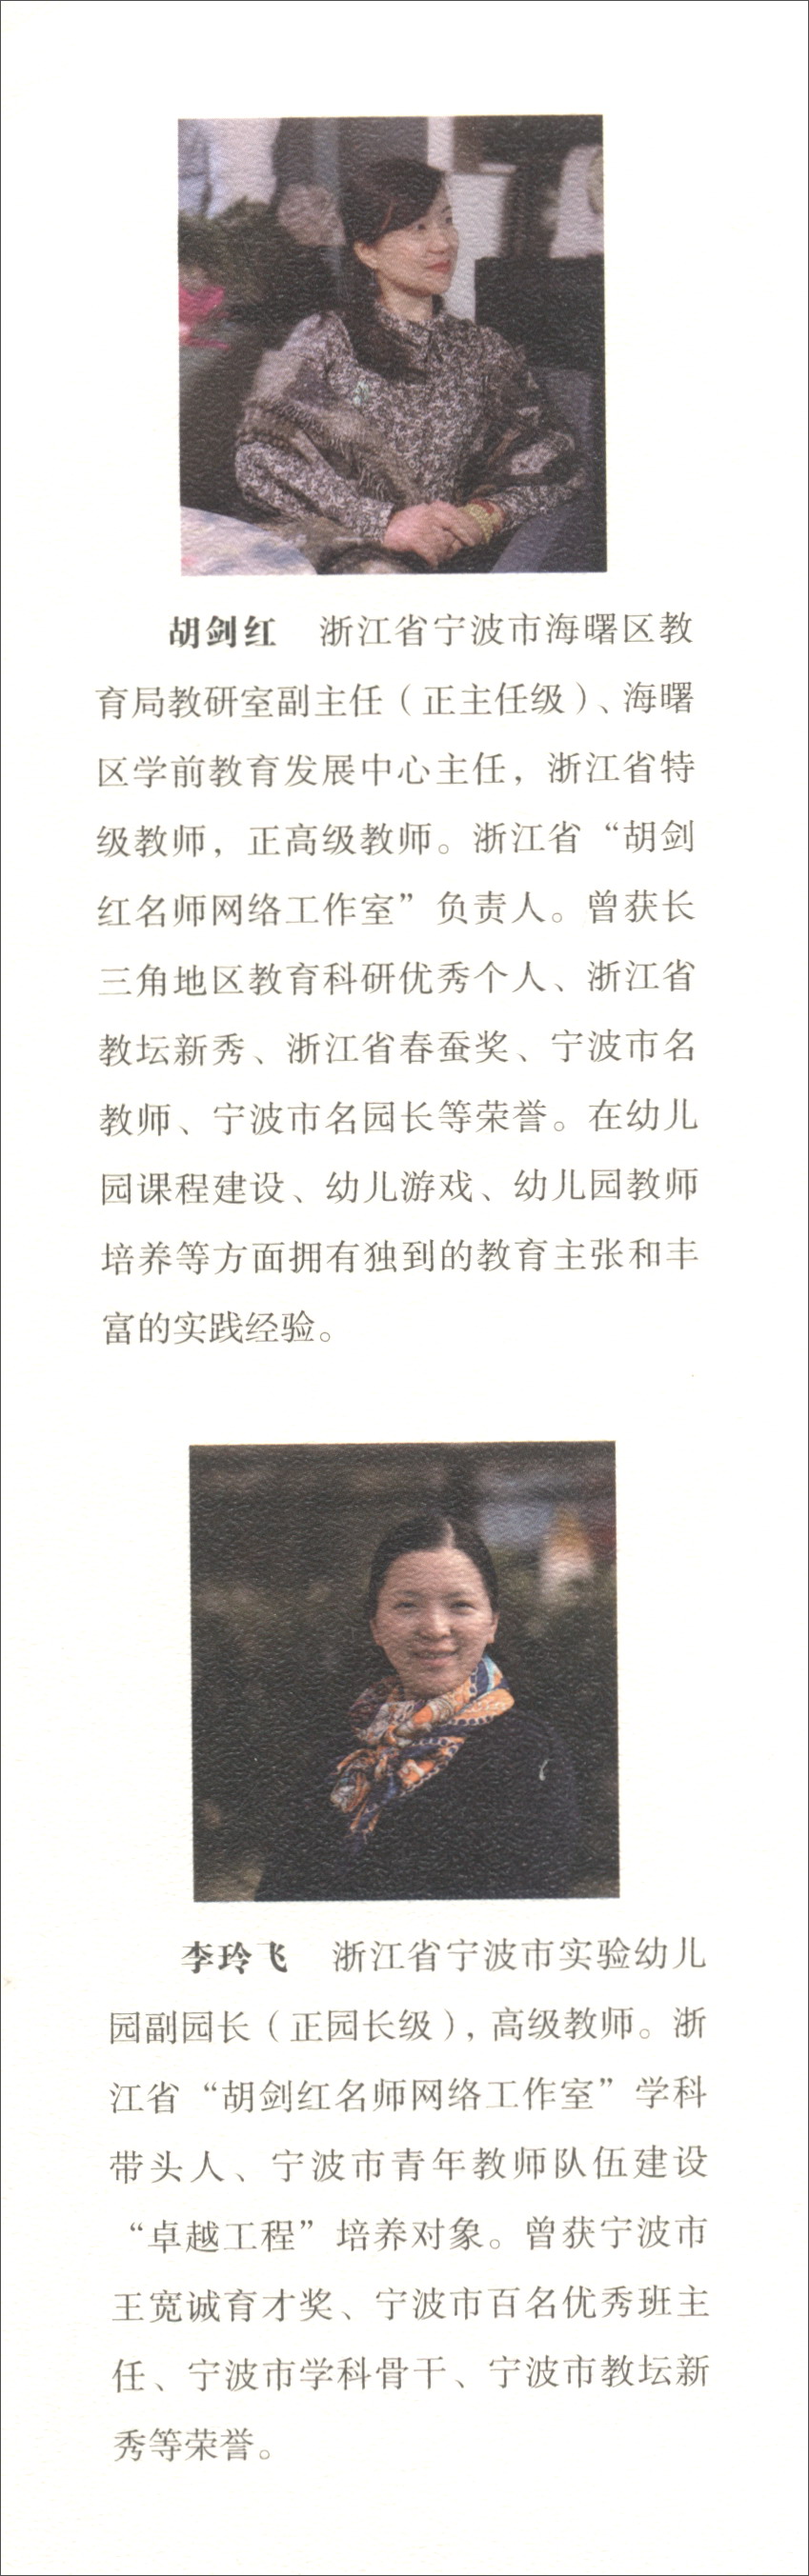 胡剑红 浙江省宁波市海曙区教
育局教研室副主任（正主任级）、海曙
区学前教育发展中心主任，浙江省特
级教师，正高级教师。浙江省“胡剑
红名师网络工作室”负责人。曾获长
三角地区教育科研优秀个人、浙江省
教坛新秀、浙江省春蚕奖、宁波市名
教师、宁波市名园长等荣誉。在幼儿
园课程建设、幼儿游戏、幼儿园教师
培养等方面拥有独到的教育主张和丰
富的实践经验。
李玲飞 浙江省宁波市实验幼儿
园副园长（正园长级），高级教师。浙
江省“胡剑红名师网络工作室”学科
带头人、宁波市青年教师队伍建设
“卓越工程”培养对象。曾获宁波市
王宽诚育才奖、宁波市百名优秀班主
任、宁波市学科骨干、宁波市教坛新
秀等荣誉。